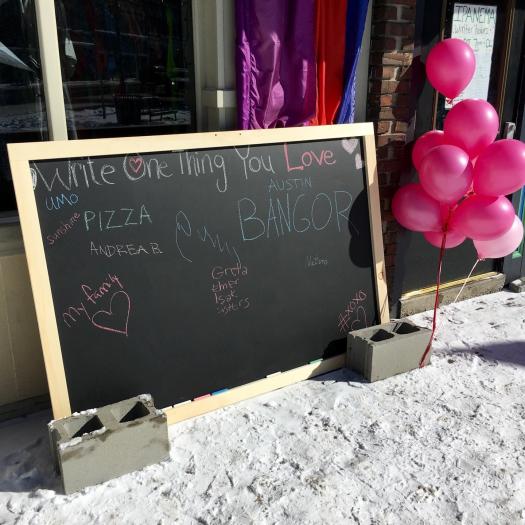 IPANEMA
Write One Thing You Love
UMO
AUSTIN
Sunshine
PIZZA
BANGOR
ANDREA B.
My family
Greta
Isak
sisters
#XOXO